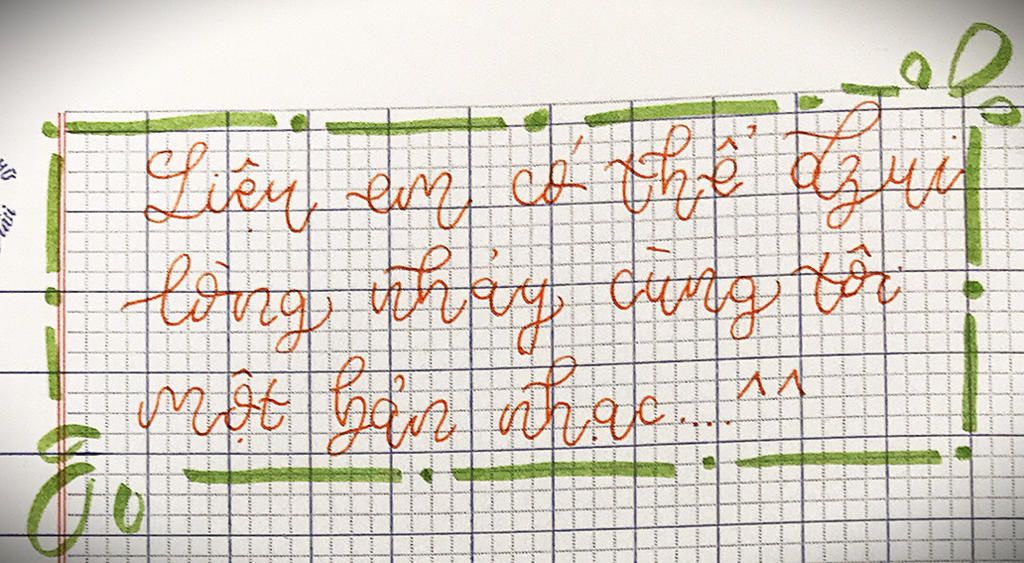 Liệu em có thể dzui
lòng nhảy cùng tôi
một bản nhạc.... ^^